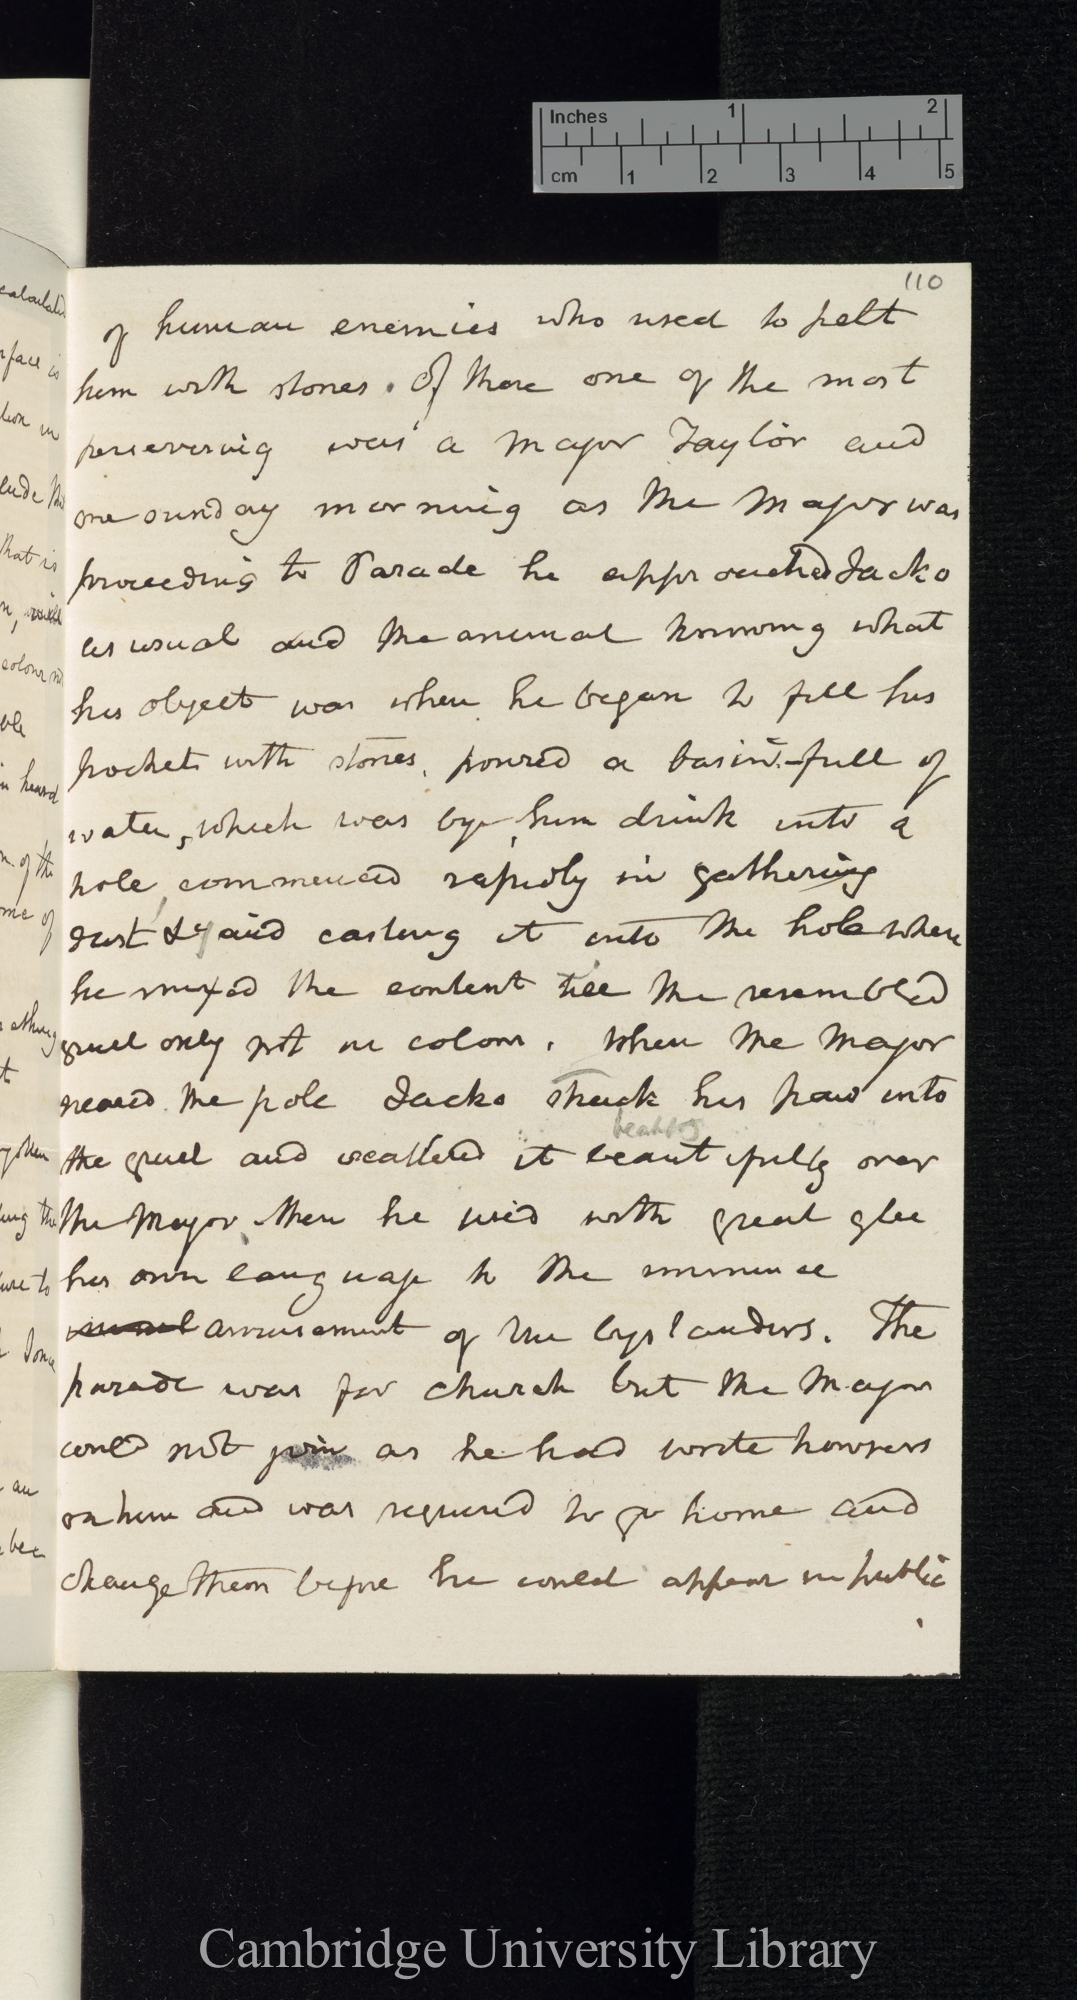 110
of human enemies who used to pelt
him with stones. Of there one of the most
perservering was a Major Taylor and
one sunday morning as the Major was
proceeding to Parade he approached Jacko
as usual and the animal knowing what
his object was when he began to fill his
pockets with stones, poured a basin-full of
water, which was by him drink into a
hole, commenced rapidly in gathering
dust &c and casting it into the hole where
he mixed the content till the resembled
gruel only not in colour. When the Major
neared the pole Jacko stuck his paw into
the gruel and scattered it beautifully over
the Major. then he used with great glee
his own language to the immense
amusement of the bystanders. The
parade was for church but the Major
could not join as he had white trowsers
on him and was required to go home and
change them before he could appear in public
Inches 1 2
cm 1 2 3 4 5
Cambridge University Library